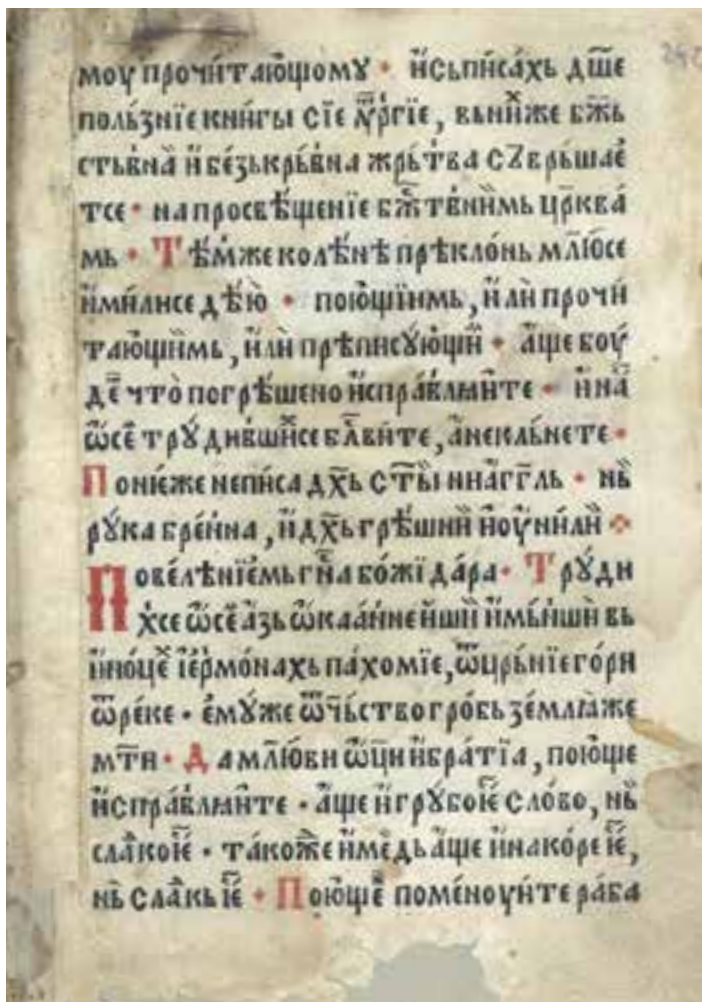 моу прочи́тающомꙋ · и҆сьпи́са́хь дш҃е
поль́знїе кни́гы сїе лѵⷯргїе, вьни́же бж҃ь
стьвна̀ и҆ бе́зькрь́вна жрь́тва сꙁврьшае҆
тсе · на просвѣ́щенїе бжⷭ҇твнимь црк҃ва́
мь · Тѣ́мже колѣ́нѣ прѣкло́нь мл҃ю́се
и҆ми́лисе дѣ́ю · пою́щїимь, и҆лѝ прочи́
тающимь, и҆лѝ прѣпи́сꙋющи · а҆́ще боу́
деⷮ что̀ погрѣ́шено и҆спра́влꙗите · и҆на́ⷭ
ѡ҆се́м трꙋ́дившⷯисе блⷭ҇ви́те, а҆некль́нете ·
Поне́же непи́са дх҃ь ст҃ы́ ниа҆́гг҃ль · нь̀
рꙋ́ка бре́нна, и҆дх҃ь грѣ́шнии и҆оу҆ни́ли ·
Повелѣ́нїемь гн҃а бо́жїда́ра · Трꙋ́ди
хсе ѡ҆се́м а҆́зь ѡ҆каа́ннеиши и҆мь́ншѝ вь
и҆но́цеⷯ і҆е҆рмо́нахь пахо́мїе, ѿцрь́нїего́ри
ѿре́ке · е҆мꙋ́же ѿчь́ство гро́бь зе́млꙗже
мт҃и · Да мл҃ю́ви ѡ҆ц҃и и҆бра́тїа, пою́ще
и҆спра́влꙗите · а҆́ще и҆грꙋ́боѥⷭ сло́во, нь̀
слаⷣкоѥⷭ · та́кожⷣе и҆ме́дь а҆́ще и҆на ко́реѥⷭ,
нь̀ слаⷣкь ѥⷭ · Пою́ще поме́ноуите ра́ба